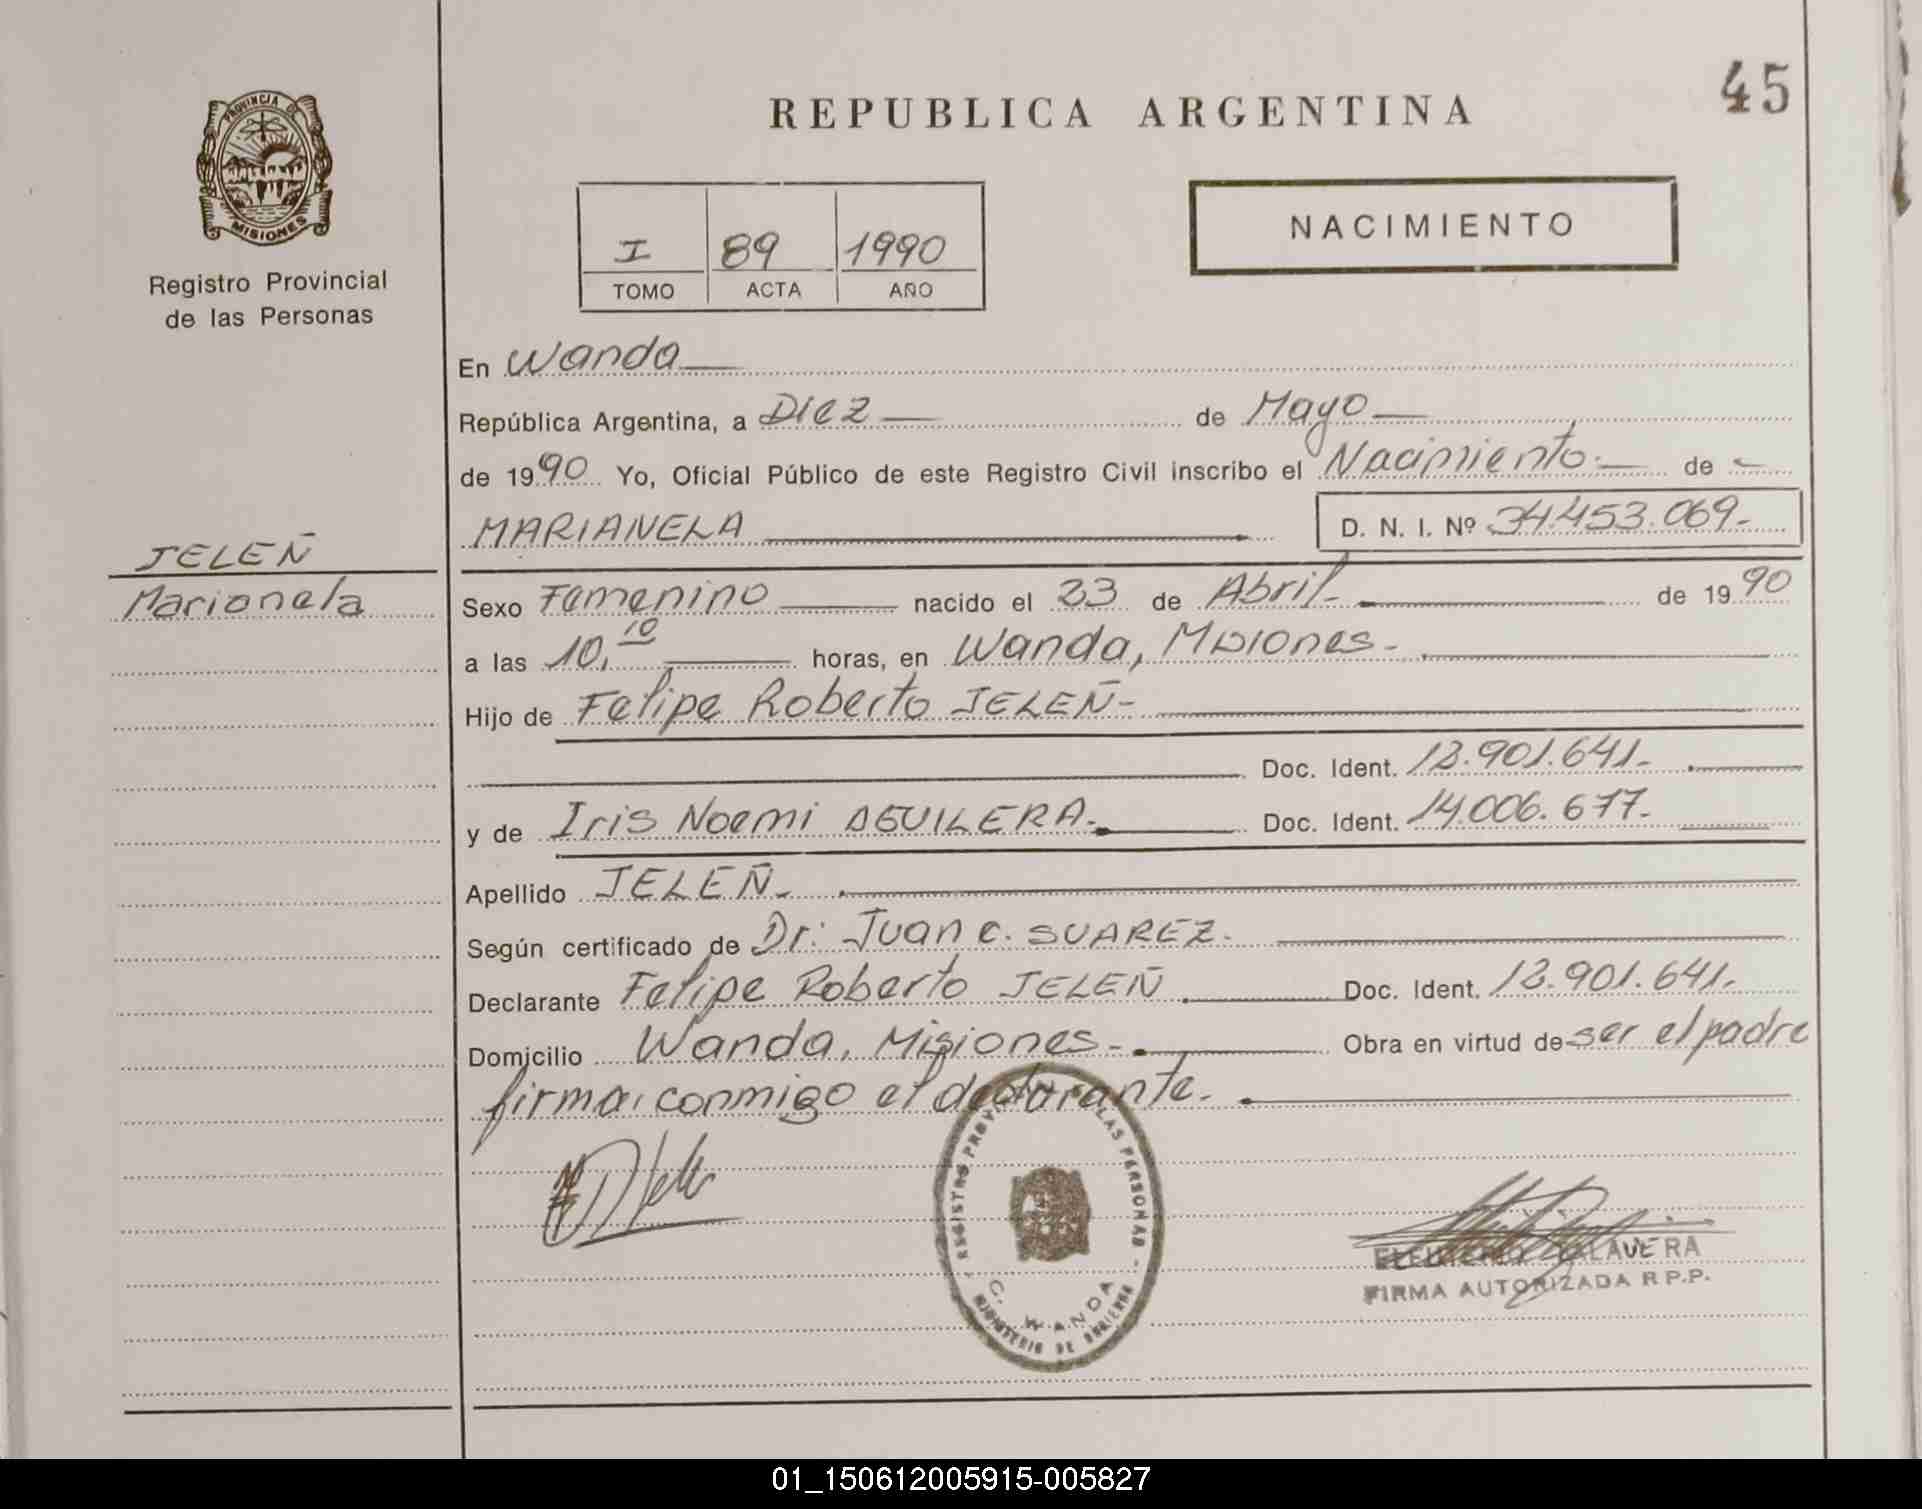 45
REPUBLICA ARGENTINA
PROVINCIA DE
MISIONES
Registro Provincial
de las Personas
NACIMIENTO
I 89 1990
TOMO ACTA AÑO
En Wanda
República Argentina, a Diez de Mayo
de 1990 Yo, Oficial Público de este Registro Civil inscribo el Nacimiento.- de -
MARIANELA D. N. I. Nº 34.453.069.-
JELEÑ
Marianela
Sexo Femenino nacido el 23 de Abril.- de 1990
a las 10,10 horas, en Wanda, Misiones.-
Hijo de Felipe Roberto JELEÑ-
Doc. Ident. 12.901.641.-
y de Iris Noemi AGUILERA.- Doc. Ident. 14.006.677.-
Apellido JELEÑ.-
Según certificado de Dr: Juan C. SUAREZ.-
Declarante Felipe Roberto JELEÑ Doc. Ident. 12.901.641.-
Domicilio Wanda, Misiones.- Obra en virtud de ser el padre
firma, conmigo el declarante.-
REGISTRO PROV LAS PERSONAS
C. WANDA
MINISTERIO DE GOBIERNO
TALAVERA
FIRMA AUTORIZADA R.P.P.
01_150612005915-005827